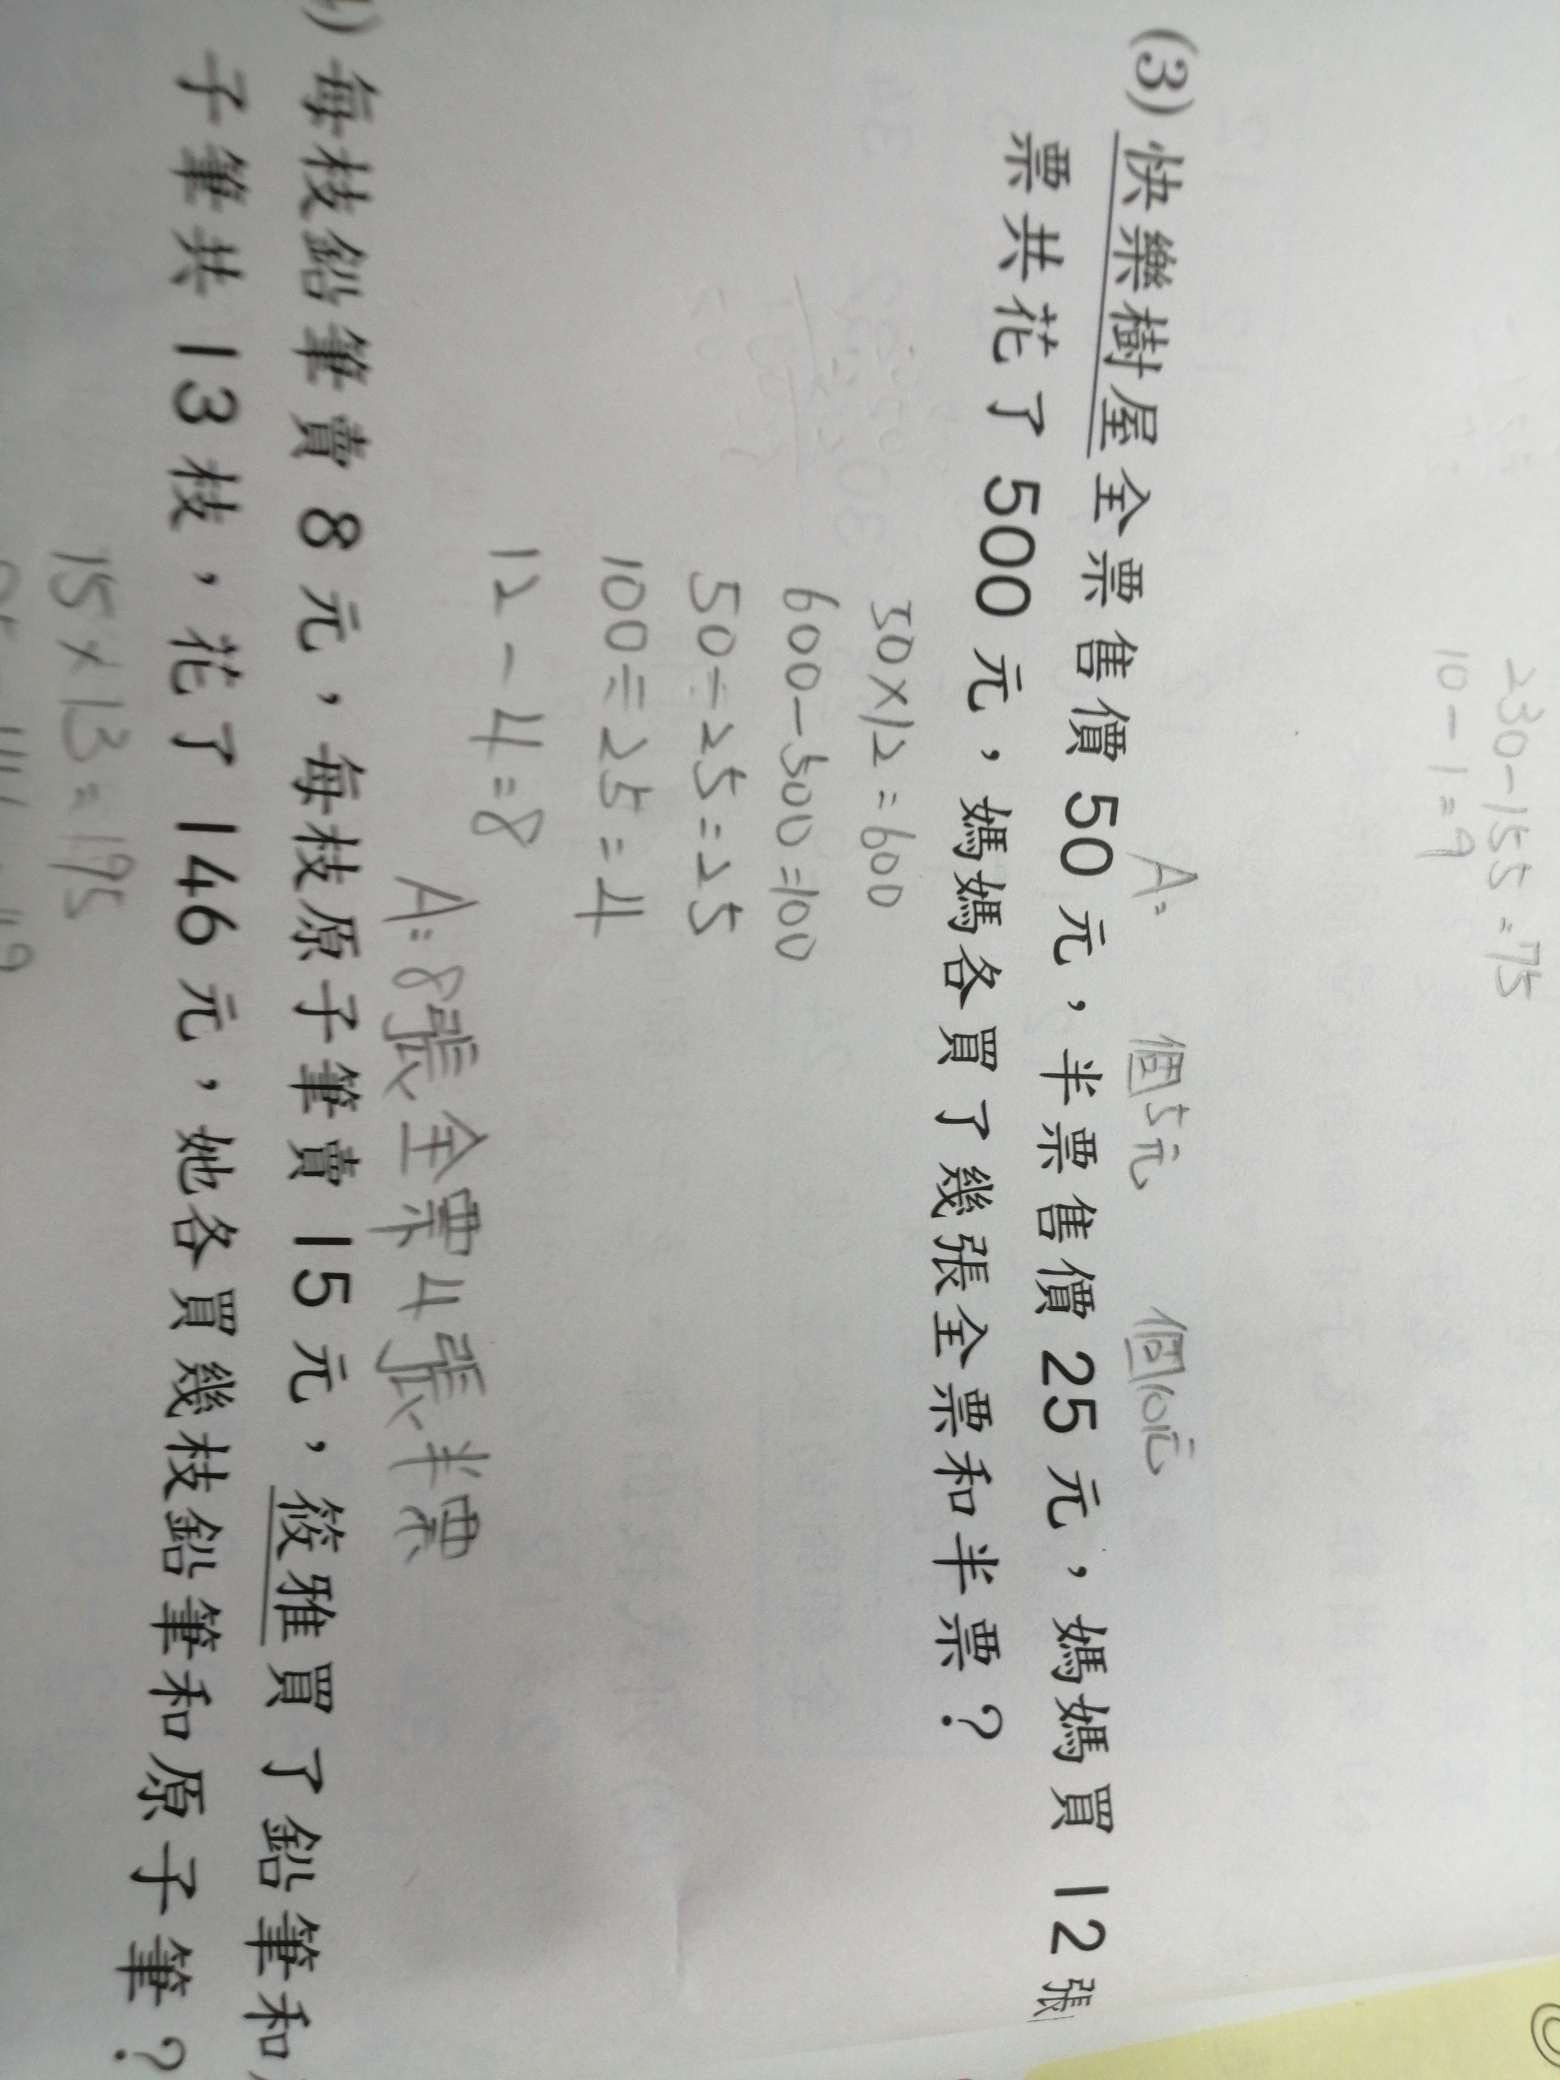 230-155=75
10-1=9
A: 個5元 個10元
(3) 快樂樹屋全票售價 50 元，半票售價 25 元，媽媽買 12 張
票共花了 500 元，媽媽各買了幾張全票和半票？
50×12=600
600-500=100
50-25=25
100÷25=4
12-4=8
A:8張全票4張半票
每枝鉛筆賣 8 元，每枝原子筆賣 15 元，筱雅買了鉛筆和
子筆共 13 枝，花了 146 元，她各買幾枝鉛筆和原子筆？
15×13=195